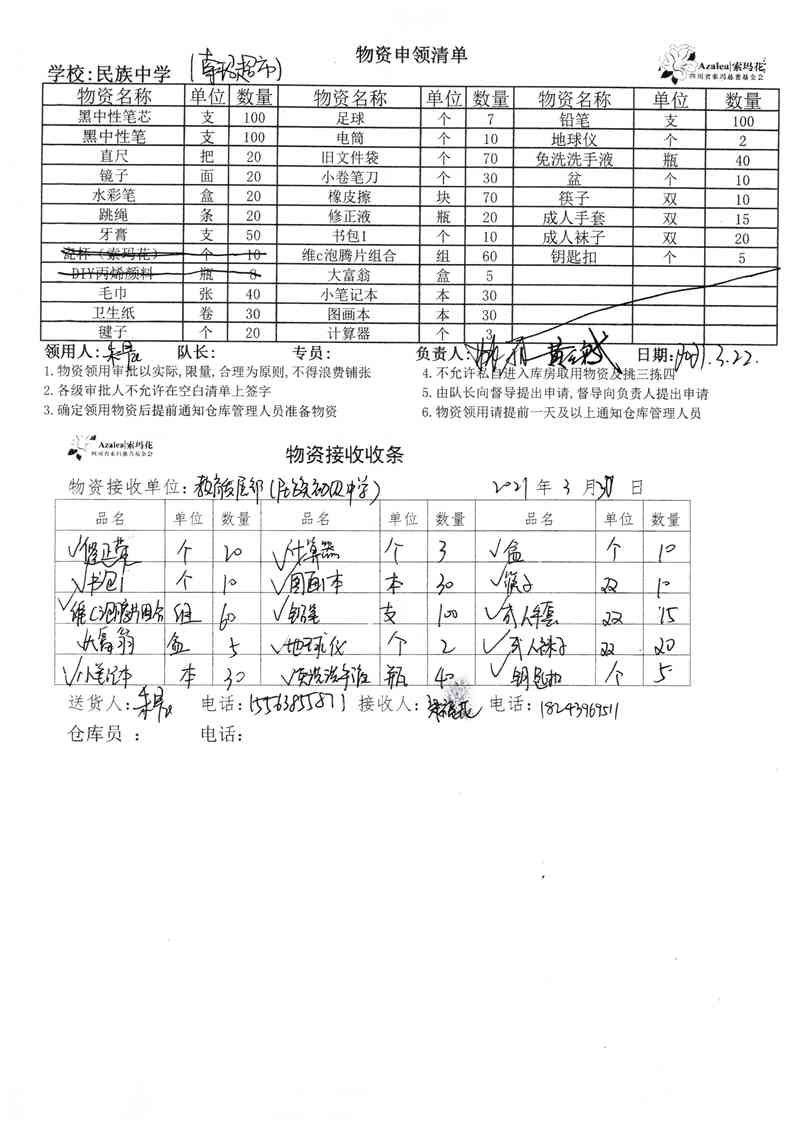 物资申领清单
学校:民族中学 (索玛超市)
Azalea|索玛花
四川省索玛慈善基金会
物资名称 单位 数量 物资名称 单位 数量 物资名称 单位 数量
黑中性笔芯 支 100 足球 个 7 铅笔 支 100
黑中性笔 支 100 电筒 个 10 地球仪 个 2
直尺 把 20 旧文件袋 个 70 免洗洗手液 瓶 40
镜子 面 20 小卷笔刀 个 30 盆 个 10
水彩笔 盒 20 橡皮擦 块 70 筷子 双 10
跳绳 条 20 修正液 瓶 20 成人手套 双 15
牙膏 支 50 书包1 个 10 成人袜子 双 20
瓷杯(索玛花) 个 10 维c泡腾片组合 组 60 钥匙扣 个 5
DIY丙烯颜料 瓶 8 大富翁 盒 5
毛巾 张 40 小笔记本 本 30
卫生纸 卷 30 图画本 本 30
毽子 个 20 计算器 个 3
领用人: 队长: 专员: 负责人: 日期:2021.3.22.
1.物资领用审批以实际,限量,合理为原则,不得浪费铺张 4.不允许私自进入库房取用物资及挑三拣四
2.各级审批人不允许在空白清单上签字 5.由队长向督导提出申请,督导向负责人提出申请
3.确定领用物资后提前通知仓库管理人员准备物资 6.物资领用请提前一天及以上通知仓库管理人员
Azalea|索玛花
四川省索玛慈善基金会
物资接收收条
物资接收单位:教育发展部(民族初级中学) 2021 年 3 月 30 日
品名 单位 数量 品名 单位 数量 品名 单位 数量
√修正液 个 20 √计算器 个 3 √盆 个 10
√书包1 个 10 √图画本 本 30 √筷子 双 10
√维C泡腾片组合 组 60 √铅笔 支 100 √成人手套 双 15
大富翁 盒 5 √地球仪 个 2 √成人袜子 双 20
√小笔记本 本 30 √免洗洗手液 瓶 40 √钥匙扣 个 5
送货人: 电话:15563855871 接收人: 电话:18243969511
仓库员 : 电话: